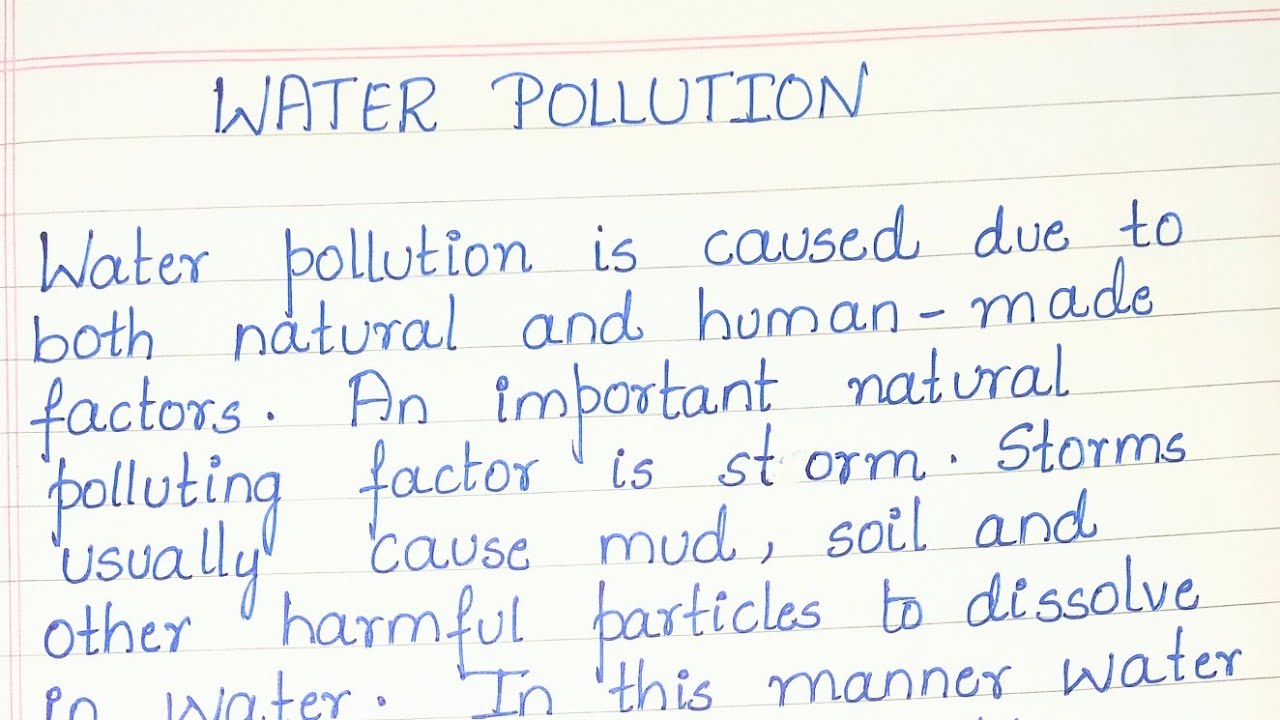 WATER POLLUTION
Water pollution is caused due to
both natural and human-made
factors. An important natural
polluting factor is storm. Storms
usually cause mud, soil and
other harmful particles to dissolve
in water. In this manner water